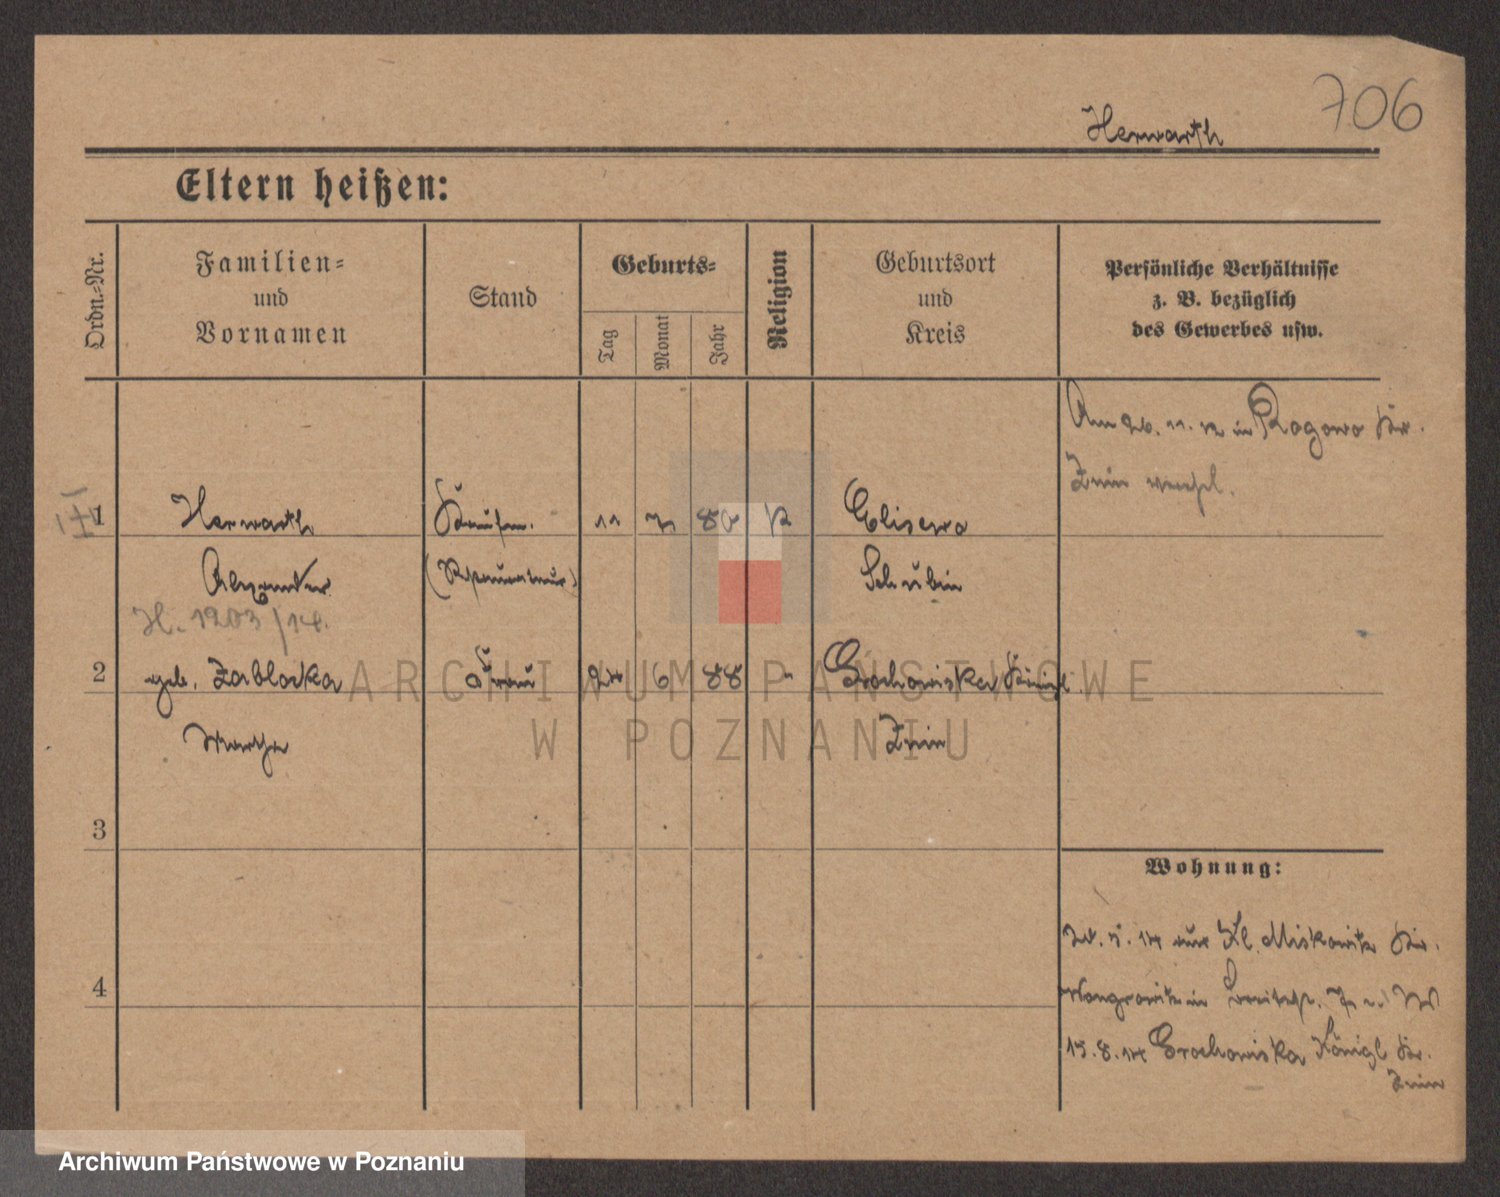 706
Herwarth
Eltern heißen:
Ordn.-Nr.
Familien-
und
Vornamen
Stand
Geburts-
Tag
Monat
Jahr
Religion
Geburtsort
und
Kreis
Persönliche Verhältnisse
z. B. bezüglich
des Gewerbes usw.
Am 26. 11. 12 in Rogowo Kr.
Znin verehl.
1 Herwarth Kaufm. 11 7 k Elisewo
Alexander Schubin
H. 1203/14.
2 geb. Zablocka Frau 24 6 88 Grochowiska Königl.
Martha Znin
3
4
Wohnung:
5. 14 aus Kl. Miskowitz Kr.
Wongrowitz in
15. 8. 14 Grochowiska Königl Kr.
Znin
ARCHIWUM PAŃSTWOWE
W POZNANIU
Archiwum Państwowe w Poznaniu